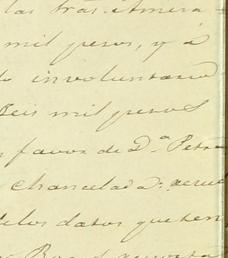 las tras. Amera
mil pesos, y á
lo involuntario
Seis mil pesos
favor de D.ª Petra
chancelad.ª
de los datos que ten